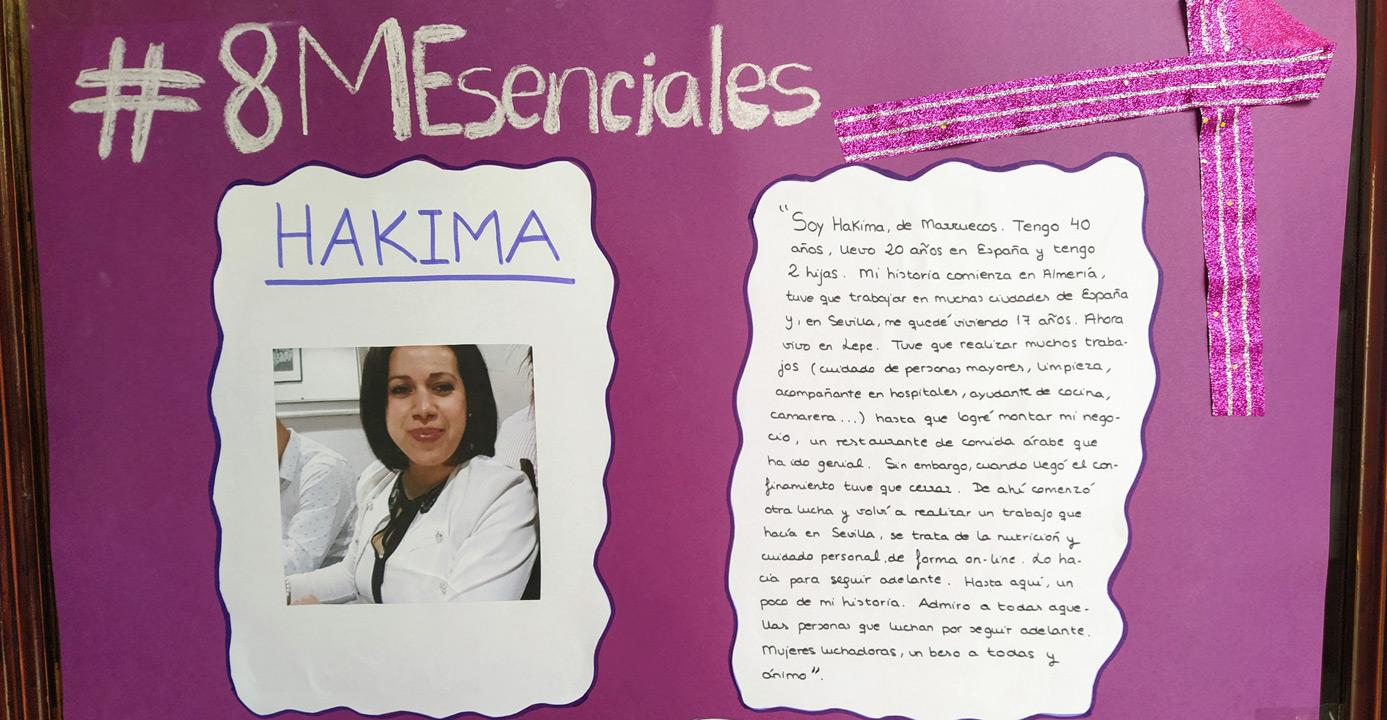 #8MEsenciales
HAKIMA
"Soy Hakima, de Marruecos. Tengo 40
años, llevo 20 años en España y tengo
2 hijas. Mi historia comienza en Almería,
tuve que trabajar en muchas ciudades de España
y, en Sevilla, me quedé viviendo 17 años. Ahora
vivo en Lepe. Tuve que realizar muchos traba-
jos (cuidado de personas mayores, limpieza,
acompañante en hospitales, ayudante de cocina,
camarera...) hasta que logré montar mi nego-
cio, un restaurante de comida árabe que
ha ido genial. Sin embargo, cuando llegó el con-
finamiento tuve que cerrar. De ahí comenzó
otra lucha y volví a realizar un trabajo que
hacía en Sevilla, se trata de la nutrición y
cuidado personal de forma on-line. Lo ha-
cía para seguir adelante. Hasta aquí, un
poco de mi historia. Admiro a todas aque-
llas personas que luchan por seguir adelante.
Mujeres luchadoras, un beso a todas y
ánimo".